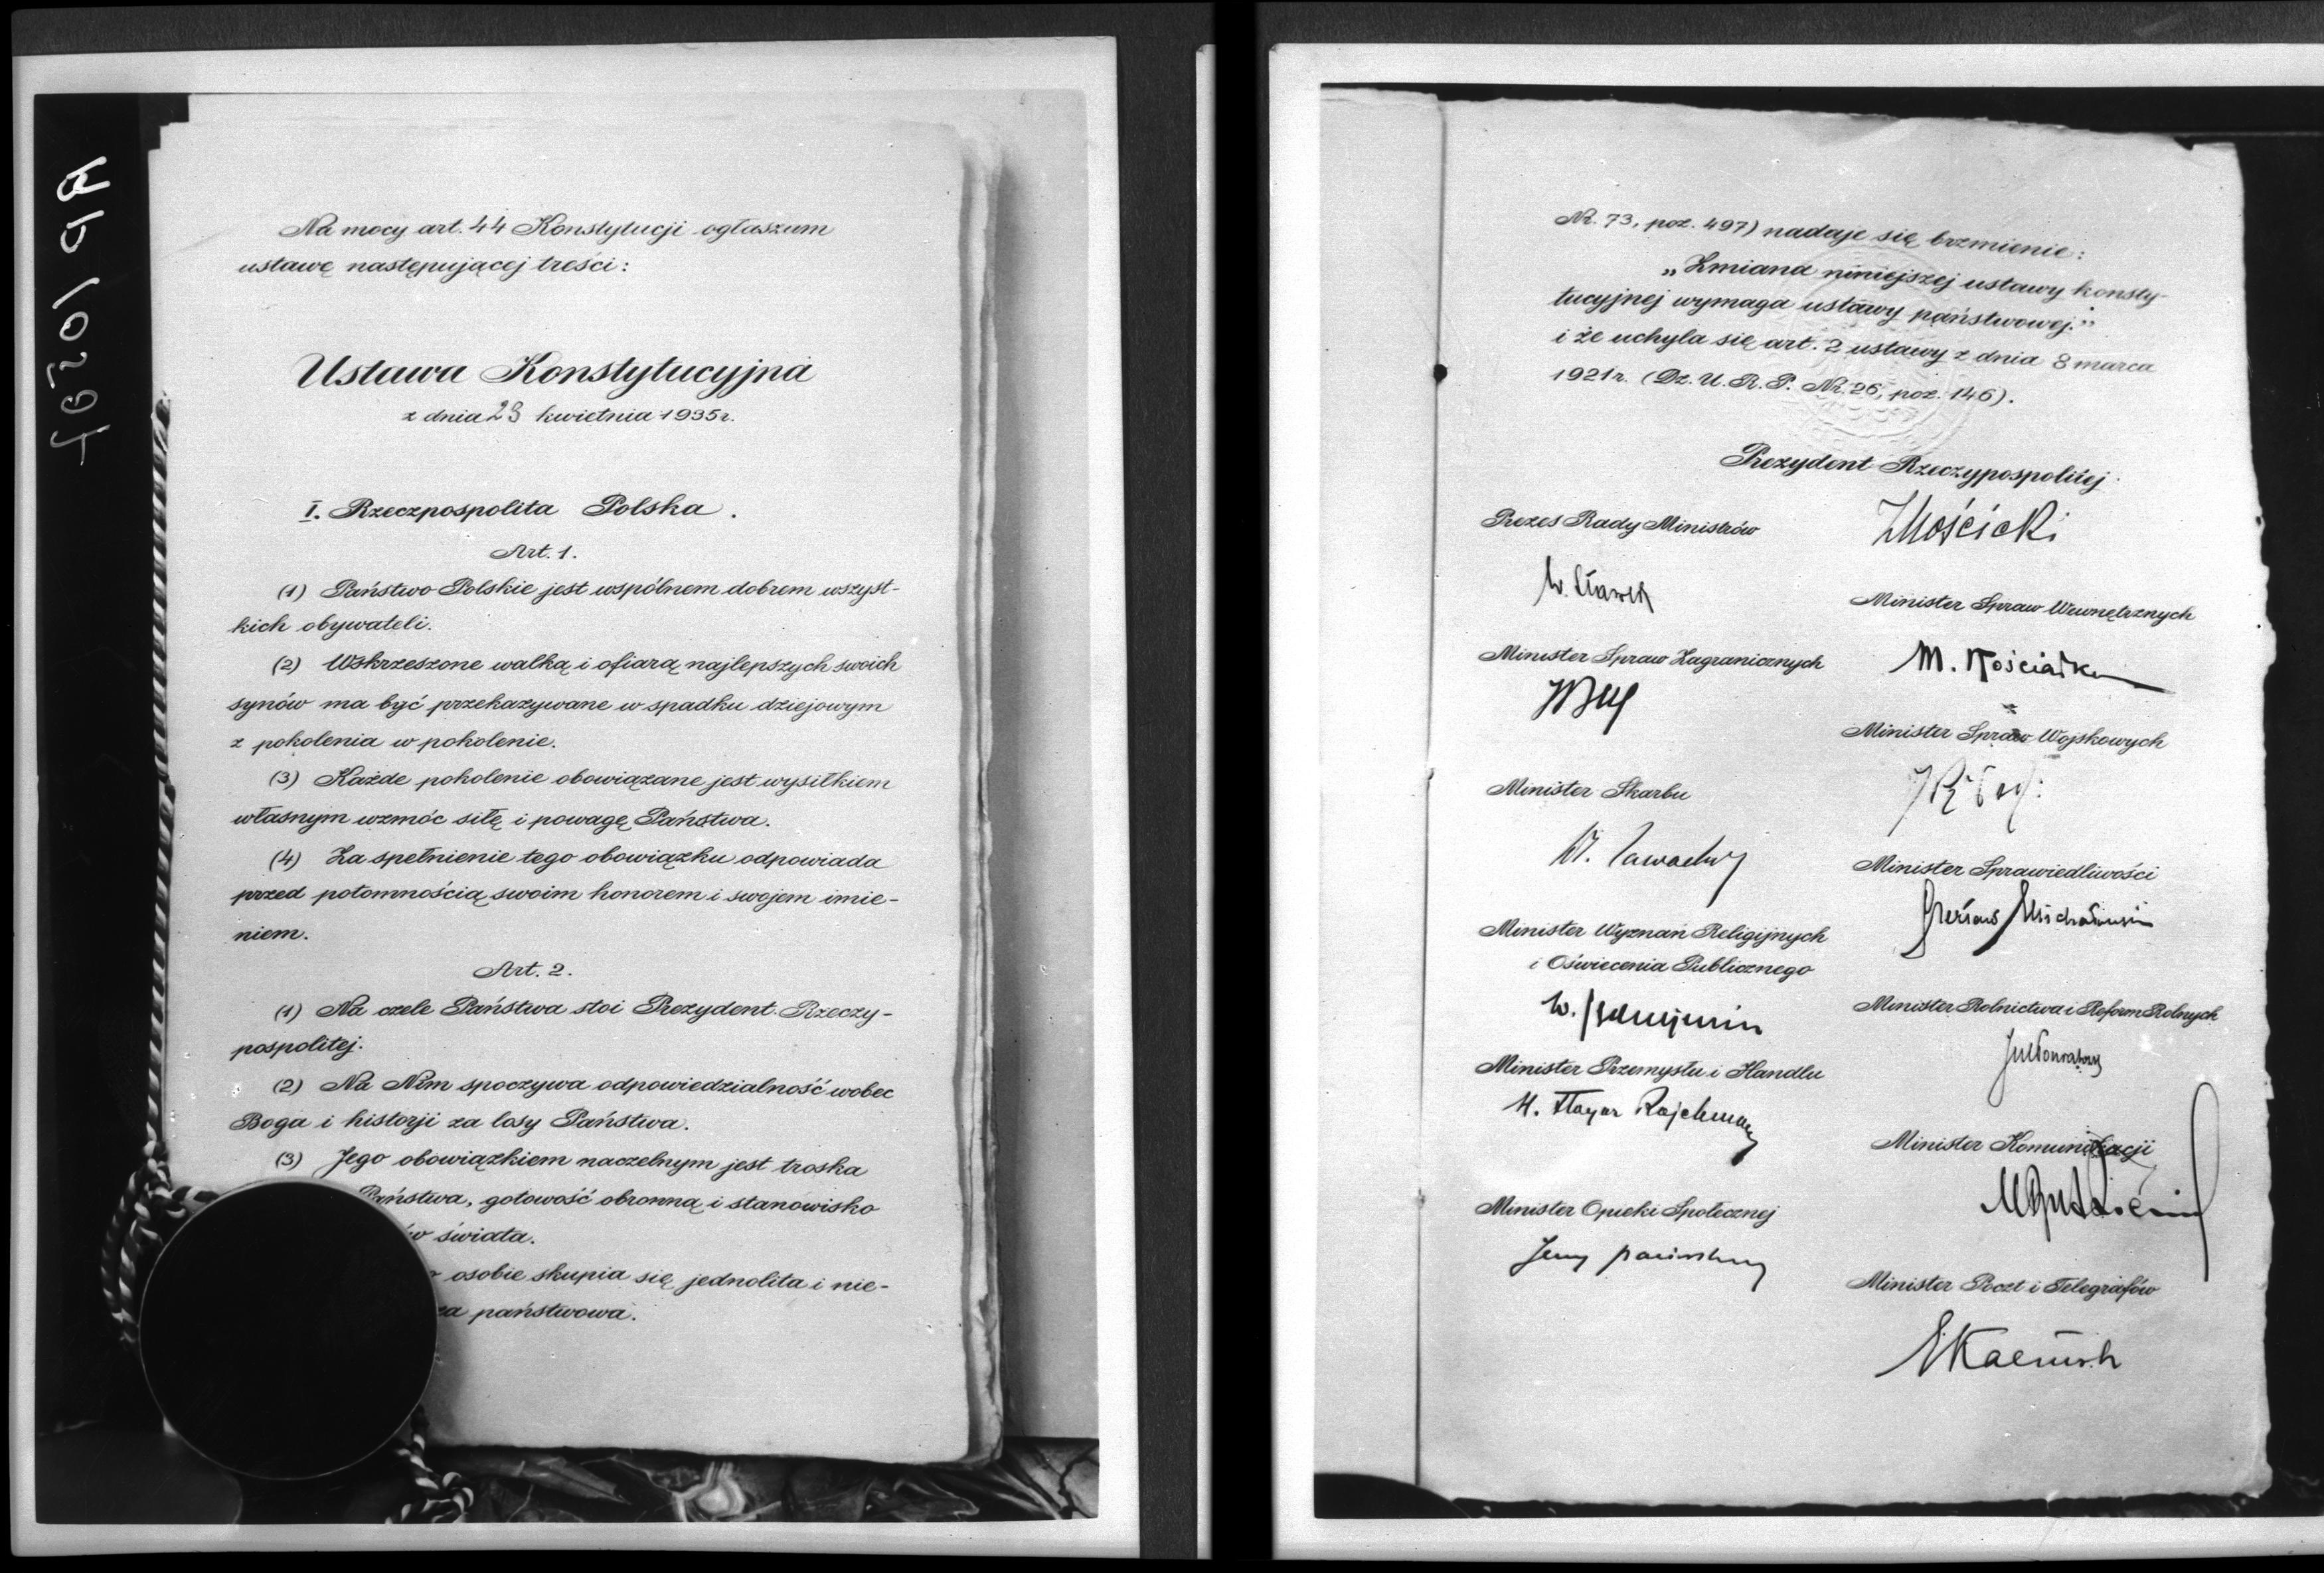 Na mocy art. 44 Konstytucji ogłaszam
ustawę następującej treści:
Ustawa Konstytucyjna
z dnia 23 kwietnia 1935 r.
I. Rzeczpospolita Polska.
Art. 1.
(1) Państwo Polskie jest wspólnem dobrem wszyst-
kich obywateli.
(2) Wskrzeszone walką i ofiarą najlepszych swoich
synów ma być przekazywane w spadku dziejowym
z pokolenia w pokolenie.
(3) Każde pokolenie obowiązane jest wysiłkiem
własnym wzmóc siłę i powagę Państwa.
(4) Za spełnienie tego obowiązku odpowiada
przed potomnością swoim honorem i swojem imie-
niem.
Art. 2.
(1) Na czele Państwa stoi Prezydent Rzeczy-
pospolitej.
(2) Na Nim spoczywa odpowiedzialność wobec
Boga i historji za losy Państwa.
(3) Jego obowiązkiem naczelnym jest troska
Państwa, gotowość obronną i stanowisko
świata.
osobie skupia się jednolita i nie-
państwowa.
Nr. 73, poz. 497) nadaje się brzmienie:
„Zmiana niniejszej ustawy konsty-
tucyjnej wymaga ustawy państwowej."
i że uchyla się art. 2 ustawy z dnia 8 marca
1921 r. (Dz. U. R. P. Nr. 26, poz. 146).
Prezydent Rzeczypospolitej
IMościcki
Prezes Rady Ministrów
W. Sławek
Minister Spraw Wewnętrznych
M. Kościałkow
Minister Spraw Zagranicznych
Minister Spraw Wojskowych
Minister Skarbu
W. Zawadzky
Minister Sprawiedliwości
Czesław Michałowski
Minister Wyznań Religijnych
i Oświecenia Publicznego
W. Jędrzejewicz
Minister Rolnictwa i Reform Rolnych
Minister Przemysłu i Handlu
H. Floyar Rajchman
Minister Komunikacji
Minister Opieki Społecznej
Jerzy Paciorkowski
Minister Poczt i Telegrafów
EKaliński